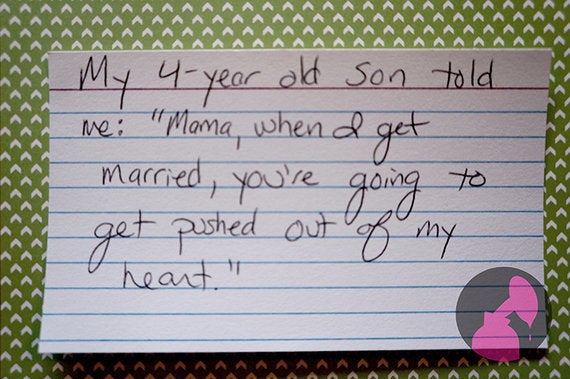 My 4-year old son told
me: "Mama, when I get
married, you're going to
get pushed out of my
heart."